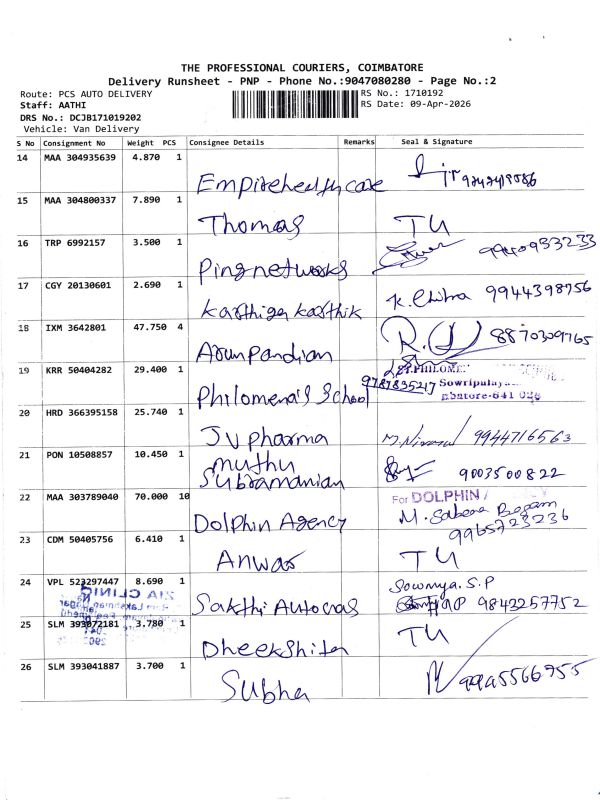 THE PROFESSIONAL COURIERS, COIMBATORE
Delivery Runsheet - PNP - Phone No.:9047080280 - Page No.:2
Route: PCS AUTO DELIVERY
RS No.: 1710192
Staff: AATHI
RS Date: 09-Apr-2026
DRS No.: DCJB171019202
Vehicle: Van Delivery
S No Consignment No Weight PCS Consignee Details Remarks Seal & Signature
14 MAA 304935639 4.870 1
Empirehealthcare
15 MAA 304800337 7.890 1
Thomas TU
16 TRP 6992157 3.500 1
Pingnetworks 9940933233
17 CGY 20130601 2.690 1
Karthiga Karthik K. Chitra 9944398756
18 IXM 3642801 47.750 4
Arunpandian 8870309765
19 KRR 50404282 29.400 1
ST.PHILOME
Philomena's School 9787835217 Sowripalaya
mbatore-641 028
20 HRD 366395158 25.740 1
JV pharma 9944716563
21 PON 10508857 10.450 1
muthu
Subramanian 9003500822
22 MAA 303789040 70.000 10
For DOLPHIN
Dolphin Agency M. Sabena Begam
9965723236
23 CDM 50405756 6.410 1
Anwar TU
24 VPL 523297447 8.690 1
Sowmya. S.P
Sakthi Autocras 9843257752
25 SLM 393072181 3.780 1
Dheekshita TU
26 SLM 393041887 3.700 1
Subha